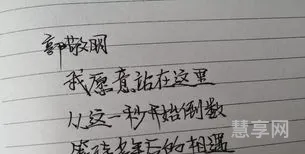 郭敬明
我愿意站在这里
从这一秒开始倒数
等待多年后的相遇
慧享网
www.czhuihao.cn